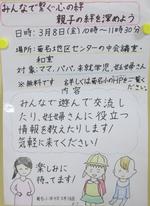 みんなで繋ぐ心の絆
親子の絆を深めよう
日時:3月8日(金)10時〜11時30分
場所:菊名地区センターの中会議室・
和室
対象:ママ、パパ、未就学児、妊婦さん
※無料です
みんなで遊んで交流し
たり、子育てに役立つ
情報を教えたりします!
気軽に来てください!
楽しみに
待ってます!